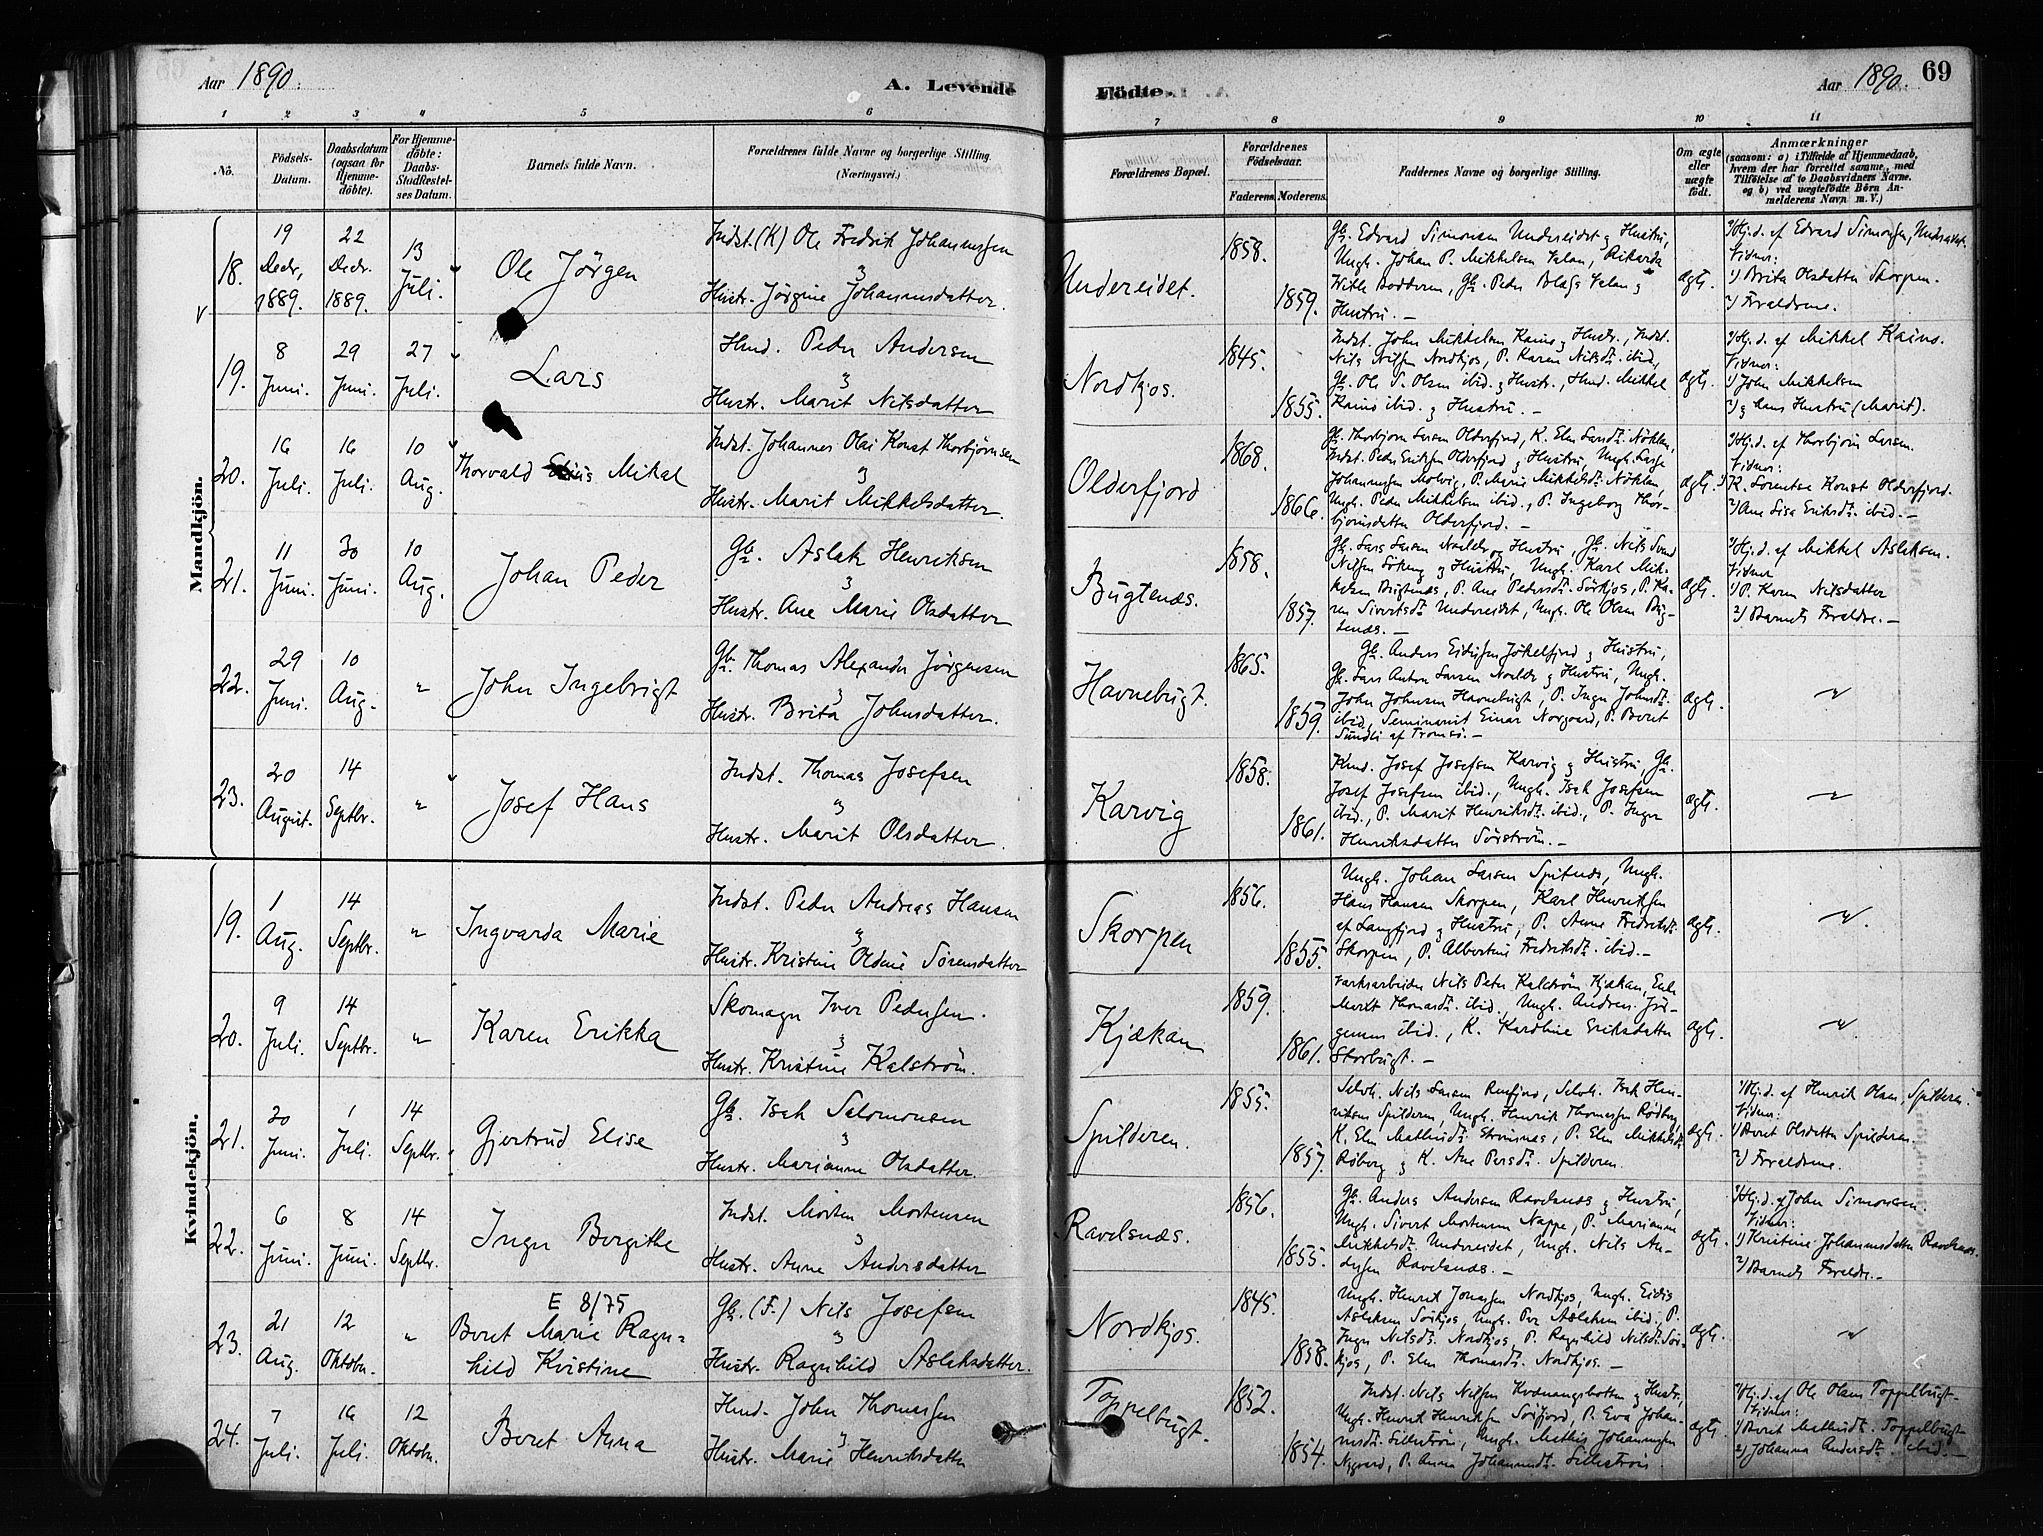 Aar 1890.
A. Levende
Fødte.
Aar 1890.
69
1 2 3 4 5 6 7 8 9 10 11
No.
Fødsels-
Datum.
Daabsdatum
(ogsaa for
Hjemme-
døbte).
For Hjemme-
døbte:
Daabs-
Stadfæstel-
ses Datum.
Barnets fulde Navn.
Forældrenes fulde Navne og borgerlige Stilling.
(Næringsvei.)
Forældrenes Bopæl.
Forældrenes
Fødselsaar.
Faderens. Moderens.
Faddernes Navne og borgerlige Stilling.
Om ægte
eller
uægte
født.
Anmærkninger
(saasom: a) i Tilfælde af Hjemmedaab,
hvem der har forrettet samme, med
Tilføielse af to Daabsvidners Navne,
og b) ved uægtefødte Børn An-
melderens Navn m. V.)
Mandkjön.
18.
19 Decbr. 1889.
22 Decbr. 1889.
13 Juli.
Ole Jörgen
Indst. (K) Ole Fredrik Johannessen
&
Hustr. Jørgine Johannesdatter.
Undereidet.
1858.
1859.
Gb. Edvard Simonsen Undereidet & Hustru,
Ungk. Johan P. Mikkelsen Valan,
Hustru. —
ægte.
1) Hj.d. af Edvard Simonsen, Undereidet.
Vidner:
1) Brita Olsdatter Skorpen.
2) Forældrene.
19.
8 Juni.
29 Juni.
27 Juli.
Lars
Hmd. Peder Andersen
&
Hustr. Marit Nilsdatter
Nordkjos.
1845.
1855.
Indst. John Mikkelsen Kaino & Hustr., Indst.
Nils Nilsen Nordkjos, P. Karen Nilsdt. ibid,
Gb. Ole P. Olsen ibid. & Hustr., Hmd. Mikkel
Kaino ibid. & Hustru. —
ægte.
1) Hj.d. af Mikkel Kaino.
Vidner:
1) John Mikkelsen
2) & hans Hustru (Marit).
20.
16 Juli.
16 Juli.
10 Aug.
Thorvald Mikal
Indst. Johannes Olai Konst Thorbjørnsen
&
Hustr. Marit Mikkelsdatter.
Olderfjord
1868.
1866.
Gb. Thorbjørn Larsen Olderfjord, K. Elen Larsdt. Nöklan,
Indst. Peder Eriksen Olderfjord & Hustru, Ungk. Lars
Johannesen Molvig, P. Marie Mikkelsdt. Nöklan,
Ungk. Peder Mikkelsen ibid., P. Ingeborg Thor-
bjørnsdatter Olderfjord. —
ægte.
1) Hj.d. af Thorbjørn Larsen.
Vidner:
1) K. Lorentse Konst Olderfjord.
2) Ane Lisa Eriksdt. ibid. —
21.
11 Juni.
30 Juni.
10 Aug.
Johan Peder
Gb. Aslak Henriksen
&
Hustr. Ane Marie Olsdatter
Bugtenæs.
1858.
1857.
Gb. Lars Larsen & Hustru, Gb. Nils
Nilsen & Hustru, Ungk. Karl Mik-
kelsen Bugtenæs, P. Ane Pedersdt. Sörkjos, P. Ka-
ren Sivertsdt. Undereidet, Ungk. Ole Olsen Bug-
tenæs. —
ægte.
1) Hj.d. af Mikkel Aslaksen.
Vidner
1) P. Karen Nilsdatter
2) Barnets Forældre. —
22.
29 Juni.
10 Aug.
"
John Ingebrigt
Gb. Thomas Alexander Jørgensen
&
Hustr. Brita Johnsdatter.
Havnebugt.
1865.
1859.
Gb. Anders Jökelfjord & Hustru,
Gb. Lars Anton Larsen & Hustru, Ungk.
John Johnsen Havnebugt, P. Inger Johnsdt.
ibid., Seminarist Einar Norgaard, P. Beret
Sundli af Tromsø. —
ægte.
"
23.
20 August.
14 Septbr.
"
Josef Hans
Indst. Thomas Josefsen
&
Hustr. Marit Olsdatter.
Karvig
1858.
1861.
Kmd. Josef Josefsen Karvig & Hustru, Gb.
Josef Josefsen ibid., Ungk. Isak Josefsen
ibid., P. Marit Henriksdt. ibid., P. Inger
Henriksdatter Sørstrøm. —
ægte.
"
Kvindekjön.
19.
1 Aug.
14 Septbr.
"
Ingvarda Marie
Indst. Peder Andreas Hansen
&
Hustr. Kristine Oldine Sørensdatter
Skorpen
1856.
1855.
Ungk. Johan Larsen Spitnæs, Ungk.
Hans Hansen Skorpen, Karl Henriksen
af Langfjord & Hustru, P. Anne Fredriksdt.
Skorpen, P. Albertine Fredriksdt. ibid. —
ægte.
"
20.
9 Juli.
14 Septbr.
"
Karen Erikka
Skomager Iver Pedersen.
&
Hustr. Kristine Kalström.
Kjækan
1859.
1861.
Værksarbeider Nils Peter Kalström Kjækan, Enke
Marit Thomasdt. ibid, Ungk. Andreas Jör-
gensen ibid., K. Karoline Eriksdatter
Storbugt. —
ægte.
"
21.
20 Juni.
1 Juli.
14 Septbr.
Gjertrud Elise
Gb. Isak Salomonsen
&
Hustr. Marianne Olsdatter.
Spilderen.
1855.
1857.
Selvb. Nils Larsen Reinfjord, Selvb. Isak Hen-
riksen Spilderen, Ungk. Henrik Thomassen Rödberg,
K. Elen Mathisdt. Strömnæs, P. Elen Mikkelsdt.
Röberg & K. Ane Persdt. Spilderen.
ægte.
1) Hj.d. af Henrik Olsen, Spilderen.
Vidner:
1) Beret Olsdatter Spilderen.
2) Forældrene.
22.
6 Juni.
8 Juni.
14 Septbr.
Inger Bergithe
Indst. Morten Mortensen
&
Hustr. Anne Andersdatter
Ravelsnæs.
1856.
1855.
Gb. Anders Andersen Ravelsnæs & Hustru,
Ungk. Sivert Mortensen Nappe, P. Marianne
Mikkelsdt. Undereidet, Ungk. Nils An-
dersen Ravelsnæs. —
ægte.
1) Hj.d. af John Simonsen.
Vidner:
1) Kristine Johannesdatter Ravelsnæs.
2) Barnets Forældre. —
23.
21 Aug.
12 Oktobr.
"
E 8/75
Beret Marie Ragn-
hild Kristine
Gb. (F.) Nils Josefsen
&
Hustr. Ragnhild Aslaksdatter.
Nordkjos.
1845.
1858.
Ungk. Henrik Jonassen Nordkjos, Ungk.
Aslaksen Sörkjos, Ungk. Per Aslaksen ibid., P.
Inger Nilsdt. Nordkjos, P. Ragnhild Nilsdt. Sör-
kjos, P. Elen Thomasdt. Nordkjos. —
ægte.
"
24.
7 Juli.
16 Juli.
12 Oktobr.
Beret Anna
Hmd. John Thomassen
&
Hustr. Marie Henriksdatter
Toppelbugt.
1852.
1854.
Indst. Nils Nilsen Kvænangsbotten & Hustr.,
Ungk. Henrik Henriksen Sørfjord, P. Eva Johan-
nesdt. , Ungk. Mathis Johannessen
Nygaard, P. Anna Johannesdt.
ægte.
1) Hj.d. af Ole Olsen Toppelbugt.
Vidner:
1) Beret Mathisdt. Toppelbugt
2) Johanna Andersdt. ibid. —